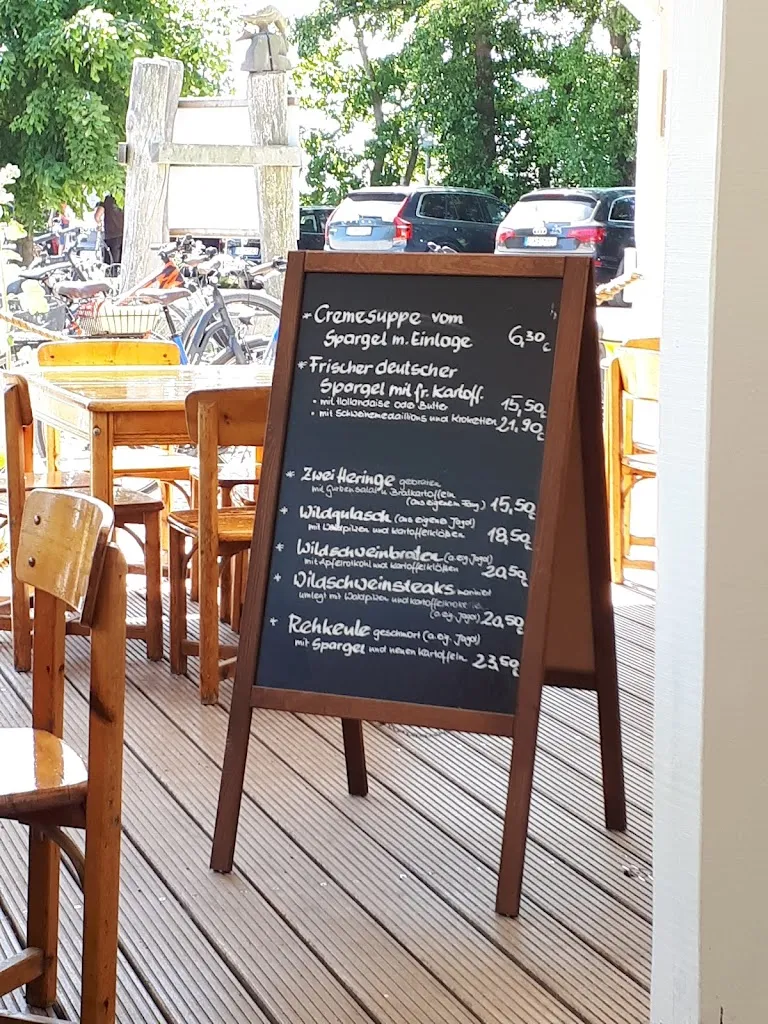 * Cremesuppe vom
Spargel m. Einlage 6,30 €
* Frischer deutscher
Spargel mit fr. Kartoff.
• mit Hollandaise oder Butter 15,50 €
• mit Schweinemedaillons und Kroketten 21,90 €
* Zwei Heringe gebraten
mit Gurkensalat u. Bratkartoffeln
(aus eigenem Fang) 15,50 €
* Wildgulasch (aus eigener Jagd)
mit Waldpilzen und Kartoffelklößen 18,50 €
* Wildschweinbraten (a. eig. Jagd)
mit Apfelrotkohl und Kartoffelklößen 20,50 €
* Wildschweinsteaks mariniert
umlegt mit Waldpilzen und Kartoffelkroketten
(a. eig. Jagd) 20,50 €
* Rehkeule geschmort (a. eig. Jagd)
mit Spargel und neuen Kartoffeln 23,50 €